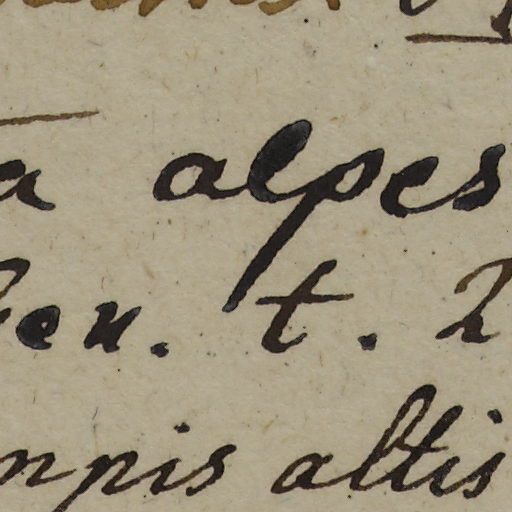 a alpes
en. t. 2
mpis altis